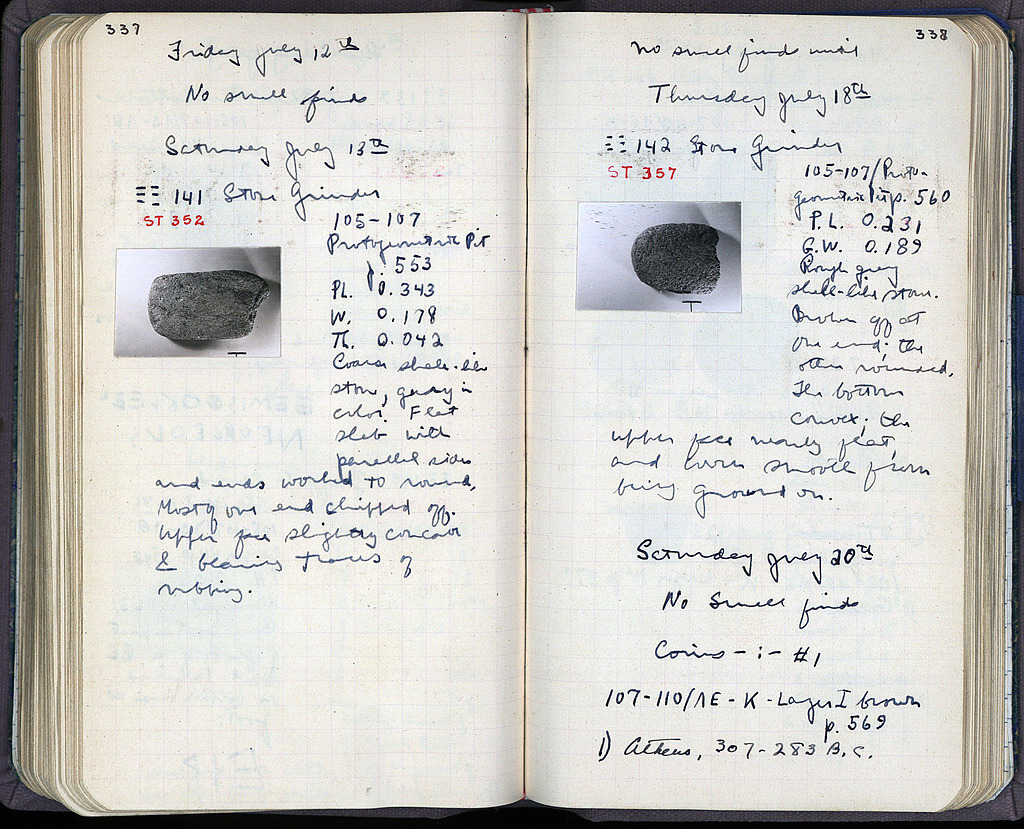 337
Friday July 12th
No small finds
Saturday July 13th
ΞΞ 141 Stone Grinder
ST 352
105-107
Protogeometric Pit
p. 553
PL. 0.343
W. 0.178
Th. 0.042
Coarse shale-like
stone, gray in
color. Flat
slab with
parallel sides
and ends worked to round.
Most of one end chipped off.
Upper face slightly concave
& bearing traces of
rubbing.
338
No small finds until
Thursday July 18th
ΞΞ 142 Stone Grinder
ST 357
105-107/Proto-
geometric pit p. 560
P.L. 0.231
G.W. 0.189
Rough gray
shale-like stone.
Broken off at
one end; the
other rounded.
The bottom
convex; the
upper face nearly flat,
and worn smooth from
being ground on.
Saturday July 20th
No Small finds
Coins -:- #1
107-110/ΛΕ - K - Layer I brown
p. 569
1) Athens, 307-283 B.C.